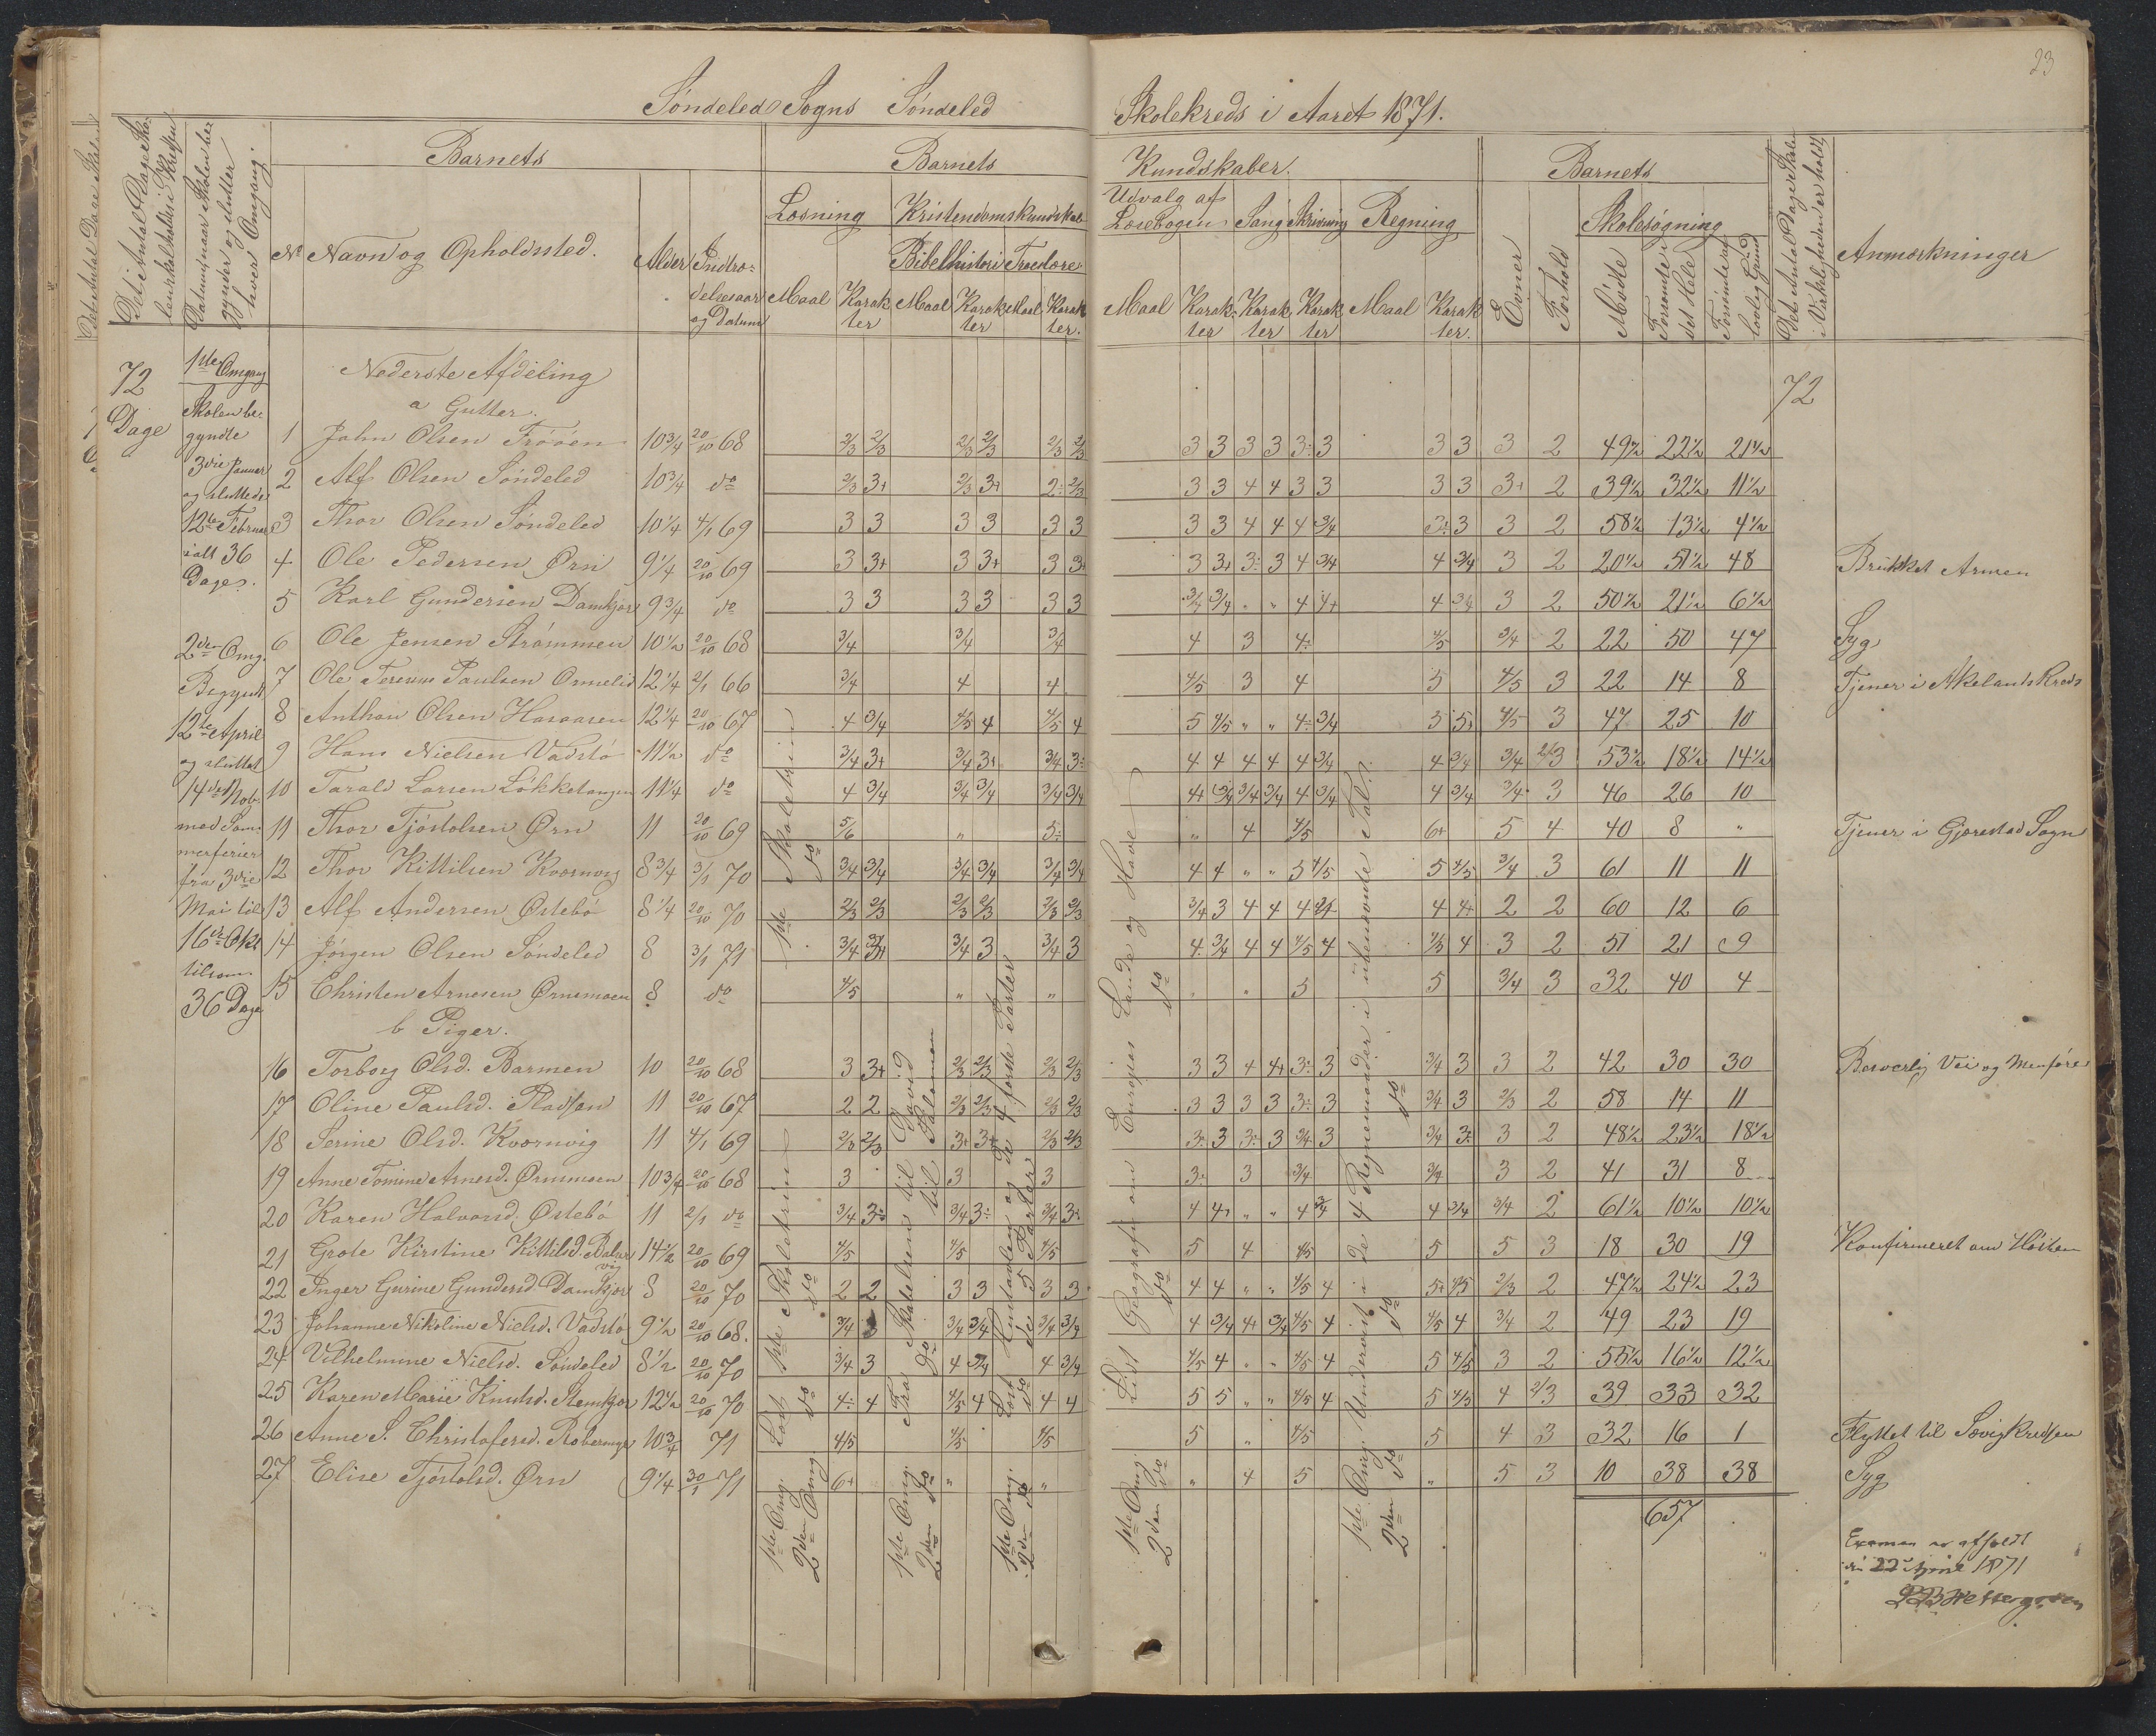 23
Søndeled Sogns Søndeled Skolekreds i Aaret 1871.
Det Antal Dage Skolen skal holdes i Kredsen
Datum, naar Skolen begynder og slutter hver Omgang.
Barnets
Barnets Kundskaber.
Barnets
Det Antal Dage Skolen i Virkeligheden er holdt
Læsning Kristendomskundskab
Udvalg af Læsebogen Sang Skrivning Regning
Skolesøgning
No Navn og Opholdssted. Alder Indtrædelsesaar og Datum
Bibelhistorie Troeslære
Maal Karakter Maal Karakter Maal Karakter.
Maal Karakter Karakter Karakter Maal Karakter.
Evner Forhold Mødte Forsømte i det Hele Forsømte af lovlig Grund
Anmærkninger
72 Dage
1ste Omgang
Skolen begyndte
3die Januar
og sluttede
12te Februar
ialt 36
Dage.
2den Omg.
Begyndt
12te April
og sluttet
14de Nob.
med Sommerferier
fra 3die
Mai til
16de Okt
tilsam.
36 Dage
72
Nederste Afdeling
a Gutter.
1 John Olsen 10¾ 20/10 68 2/3 2/3 2/3 2/3 2/3 2/3 3 3 3 3 3÷ 3 3 3 3 2 49½ 22½ 21½
2 Alf Olsen Søndeled 10¾ do 2/3 3+ 2/3 3+ 2÷ 2/3 3 3 4 4 3 3 3 3 3+ 2 39½ 32½ 11½
3 Thor Olsen Søndeled 10¼ 4/1 69 3 3 3 3 3 3 3 3 4 4 4 3/4 3÷ 3 3 2 58½ 13½ 4½
4 Ole Pedersen Ørn 9¼ 20/10 69 3 3+ 3 3+ 3 3+ 3 3+ 3÷ 3 4 3/4 4 3/4 3 2 20½ 51½ 48 Brukket Armen
5 Karl Gundersen Damkjær 9¾ do 3 3 3 3 3 3 3/4 3/4 " " 4 4+ 4 3/4 3 2 50½ 21½ 6½
6 Ole Jensen Strømmen 10½ 20/10 68 3/4 3/4 3/4 4 3 4÷ 4/5 3/4 2 22 50 47 Syg
7 Ole Paulsen Ormelid 12¼ 2/1 66 3/4 4 4 4/5 3 4 5 4/5 3 22 14 8 Tjener i Akelands Kreds
8 Anthon Olsen Haraasen 12¼ 20/10 67 4 3/4 4/5 4 4/5 4 5 4/5 " " 4÷ 3/4 5 5+ 4/5 3 47 25 10
9 Hans Nielsen Vadstø 11½ do 3/4 3+ 3/4 3+ 3/4 3÷ 4 4 4 4 4 3/4 4 3/4 3/4 2/3 53½ 18½ 14½
10 Tarald Larsen Løkketangen 11¼ do 4 3/4 3/4 3/4 3/4 3/4 4+ 3/4 3/4 3/4 4 3/4 4 3/4 3/4 3 46 26 10
11 Thor Tjøstolsen Ørn 11 20/10 69 5/6 " 5÷ " 4 4/5 6+ 5 4 40 8 " Tjener i Gjerestad Sogn
12 Thor Kittilsen Kvernvig 8¾ 3/1 70 3/4 3/4 3/4 3/4 3/4 3/4 4 4 " " 5 4/5 5 4/5 3/4 3 61 11 11
13 Alf Andersen Østebø 8¼ 20/10 70 2/3 2/3 2/3 2/3 2/3 2/3 3/4 3 4 4 4 4 4+ 2 2 60 12 6
14 Jørgen Olsen Søndeled 8 3/1 71 3/4 3/4 3 3/4 3 4 3/4 4 4 4/5 4 4/5 4 3 2 51 21 9
15 Christen Arnesen Ørnemoen 8 do 4/5 " " " " 5 5 3/4 3 32 40 4
b Piger.
16 Torborg Olsd. Barmen 10 20/10 68 3 3+ 2/3 2/3 2/3 2/3 3 3 4 4+ 3÷ 3 3/4 3 3 2 42 30 30 Besværlig Vei og Menføre
17 Oline Paulsd. Pladsen 11 20/10 67 2 2 2/3 2/3 2/3 2/3 3 3 3 3 3÷ 3 3/4 3 2/3 2 58 14 11
18 Serine Olsd. Kvernvig 11 4/1 69 2/3 2/3 3+ 3+ 2/3 2/3 3÷ 3 3÷ 3 3/4 3 3/4 3÷ 3 2 48½ 23½ 18½
19 Anne Tomine Arnesd. Ørnmoen 10¾ 20/10 68 3 3 3 3÷ 3 3/4 3/4 3 2 41 31 8
20 Karen Halvorsd. Østebø 11 2/1 do 3/4 3÷ 3/4 3÷ 3/4 3÷ 4 4+ " " 4 3/4 4 3/4 3/4 2 61½ 10½ 10½
21 Grete Kirstine Kittilsd. 14½ 20/10 69 4/5 4/5 4/5 5 4 4/5 5 5 3 18 30 19 Konfirmeret om Høsten
22 Inger Gurine Gundersd. Damkjær 8 20/10 70 2 2 3 3 3 3 4 4 " " 4/5 4 5+ 4/5 2/3 2 47½ 24½ 23
23 Johanne Nikoline Nielsd. Vadstø 9½ 20/10 68. 3/4 3 3/4 3/4 3/4 3/4 4 3/4 4+ 3/4 4/5 4 4/5 4 3/4 2 49 23 19
24 Vilhelmine Nielsd. Søndeled 8½ 20/10 70 3/4 3 4 3/4 4 3/4 4/5 4 " " 4/5 4 5 4/5 3 2 55½ 16½ 12½
25 Karen Marie Knudsd. Stemkjær 12½ 20/10 70 4÷ 4 4/5 4 4 4 5 5 " " 4/5 4 5 4/5 4 2/3 39 33 32
26 Anne S. Christofersd. 10¾ 71 4/5 4/5 4/5 5 " 4/5 5 4 3 32 16 1 Flyttet til Sevigkredsen
27 Elise Tjøstolsd. Ørn 9¼ 30/1 71 6+ " " " 4 5 " 5 3 10 38 38 Syg
657
1ste Omg. Læst 1ste Skoletrin 1ste Skoletrin
2den Omg do do do
1ste Omg. Fra Skabelsen til David
2den do do til Salomon
1ste Omg. Læst Hustavlen og de 4 første Parter
2den do do de 5 Parter
1ste Omg Lidt Geografi om Europas Lande og Have
2den do do do
1ste Omg. Undervist i de 4 Regnemaader i ubenævnte Tal.
2den do do do do
Examen er afholdt
den 22 April 1871